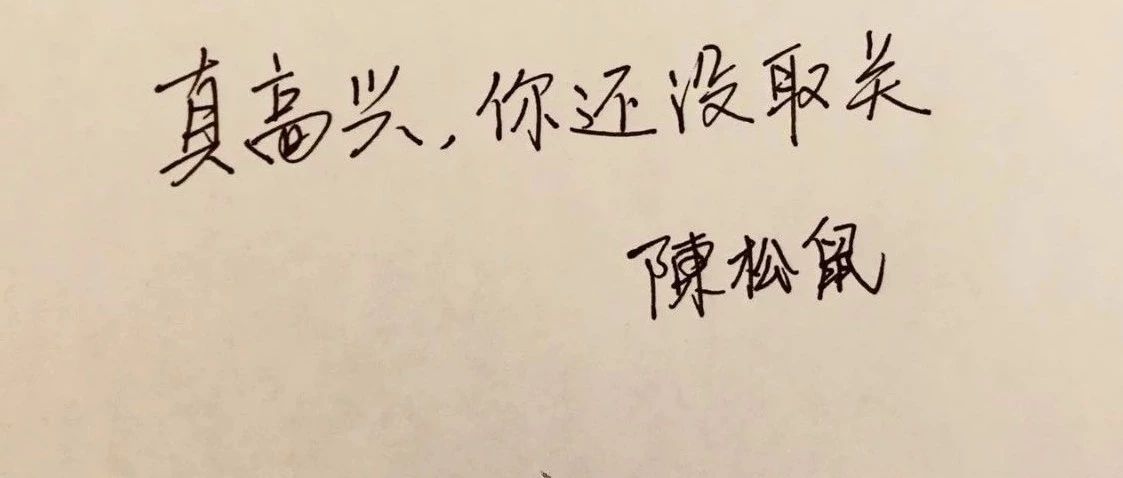 真高兴,你还没取关
陳松鼠